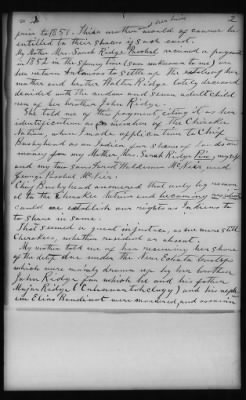 2
and her heirs
prior to 1851. Their mother would of course be
entitled to their shares if such exist.
My Mother Mrs. Sarah Ridge Paschal received a payment
in 1852 in the Spring time (sum unknown to me) on
her return to Arkansas to settle up the estates of her
mother and brother Walter Ridge lately deceased
decided with the widow and seven adult child
ren of her brother John Ridge.
She told me of this payment citing it as her
identification as a member of the Cherokee
Nation, when I made application to Chief
Bushyhead as an Indian for share of a distri
money for my Mother, Mrs. Sarah Ridge Pix, myself
and my two sons Forest Waldemar McNeir, and
George Paschal McNeir.
Chief Bushyhead answered that only by remov
al to the Cherokee Nation and becoming resident
could we establish our rights as heirs to
to share in same.
That seemed a great injustice, as we were still
Cherokees, whether resident or absent.
My mother told me of her receiving her share
of the debt due under the New Echota
which were mainly drawn up by her brother
John Ridge for which he and his father
Major Ridge and his neph
ew Elias Boudinot were murdered, and